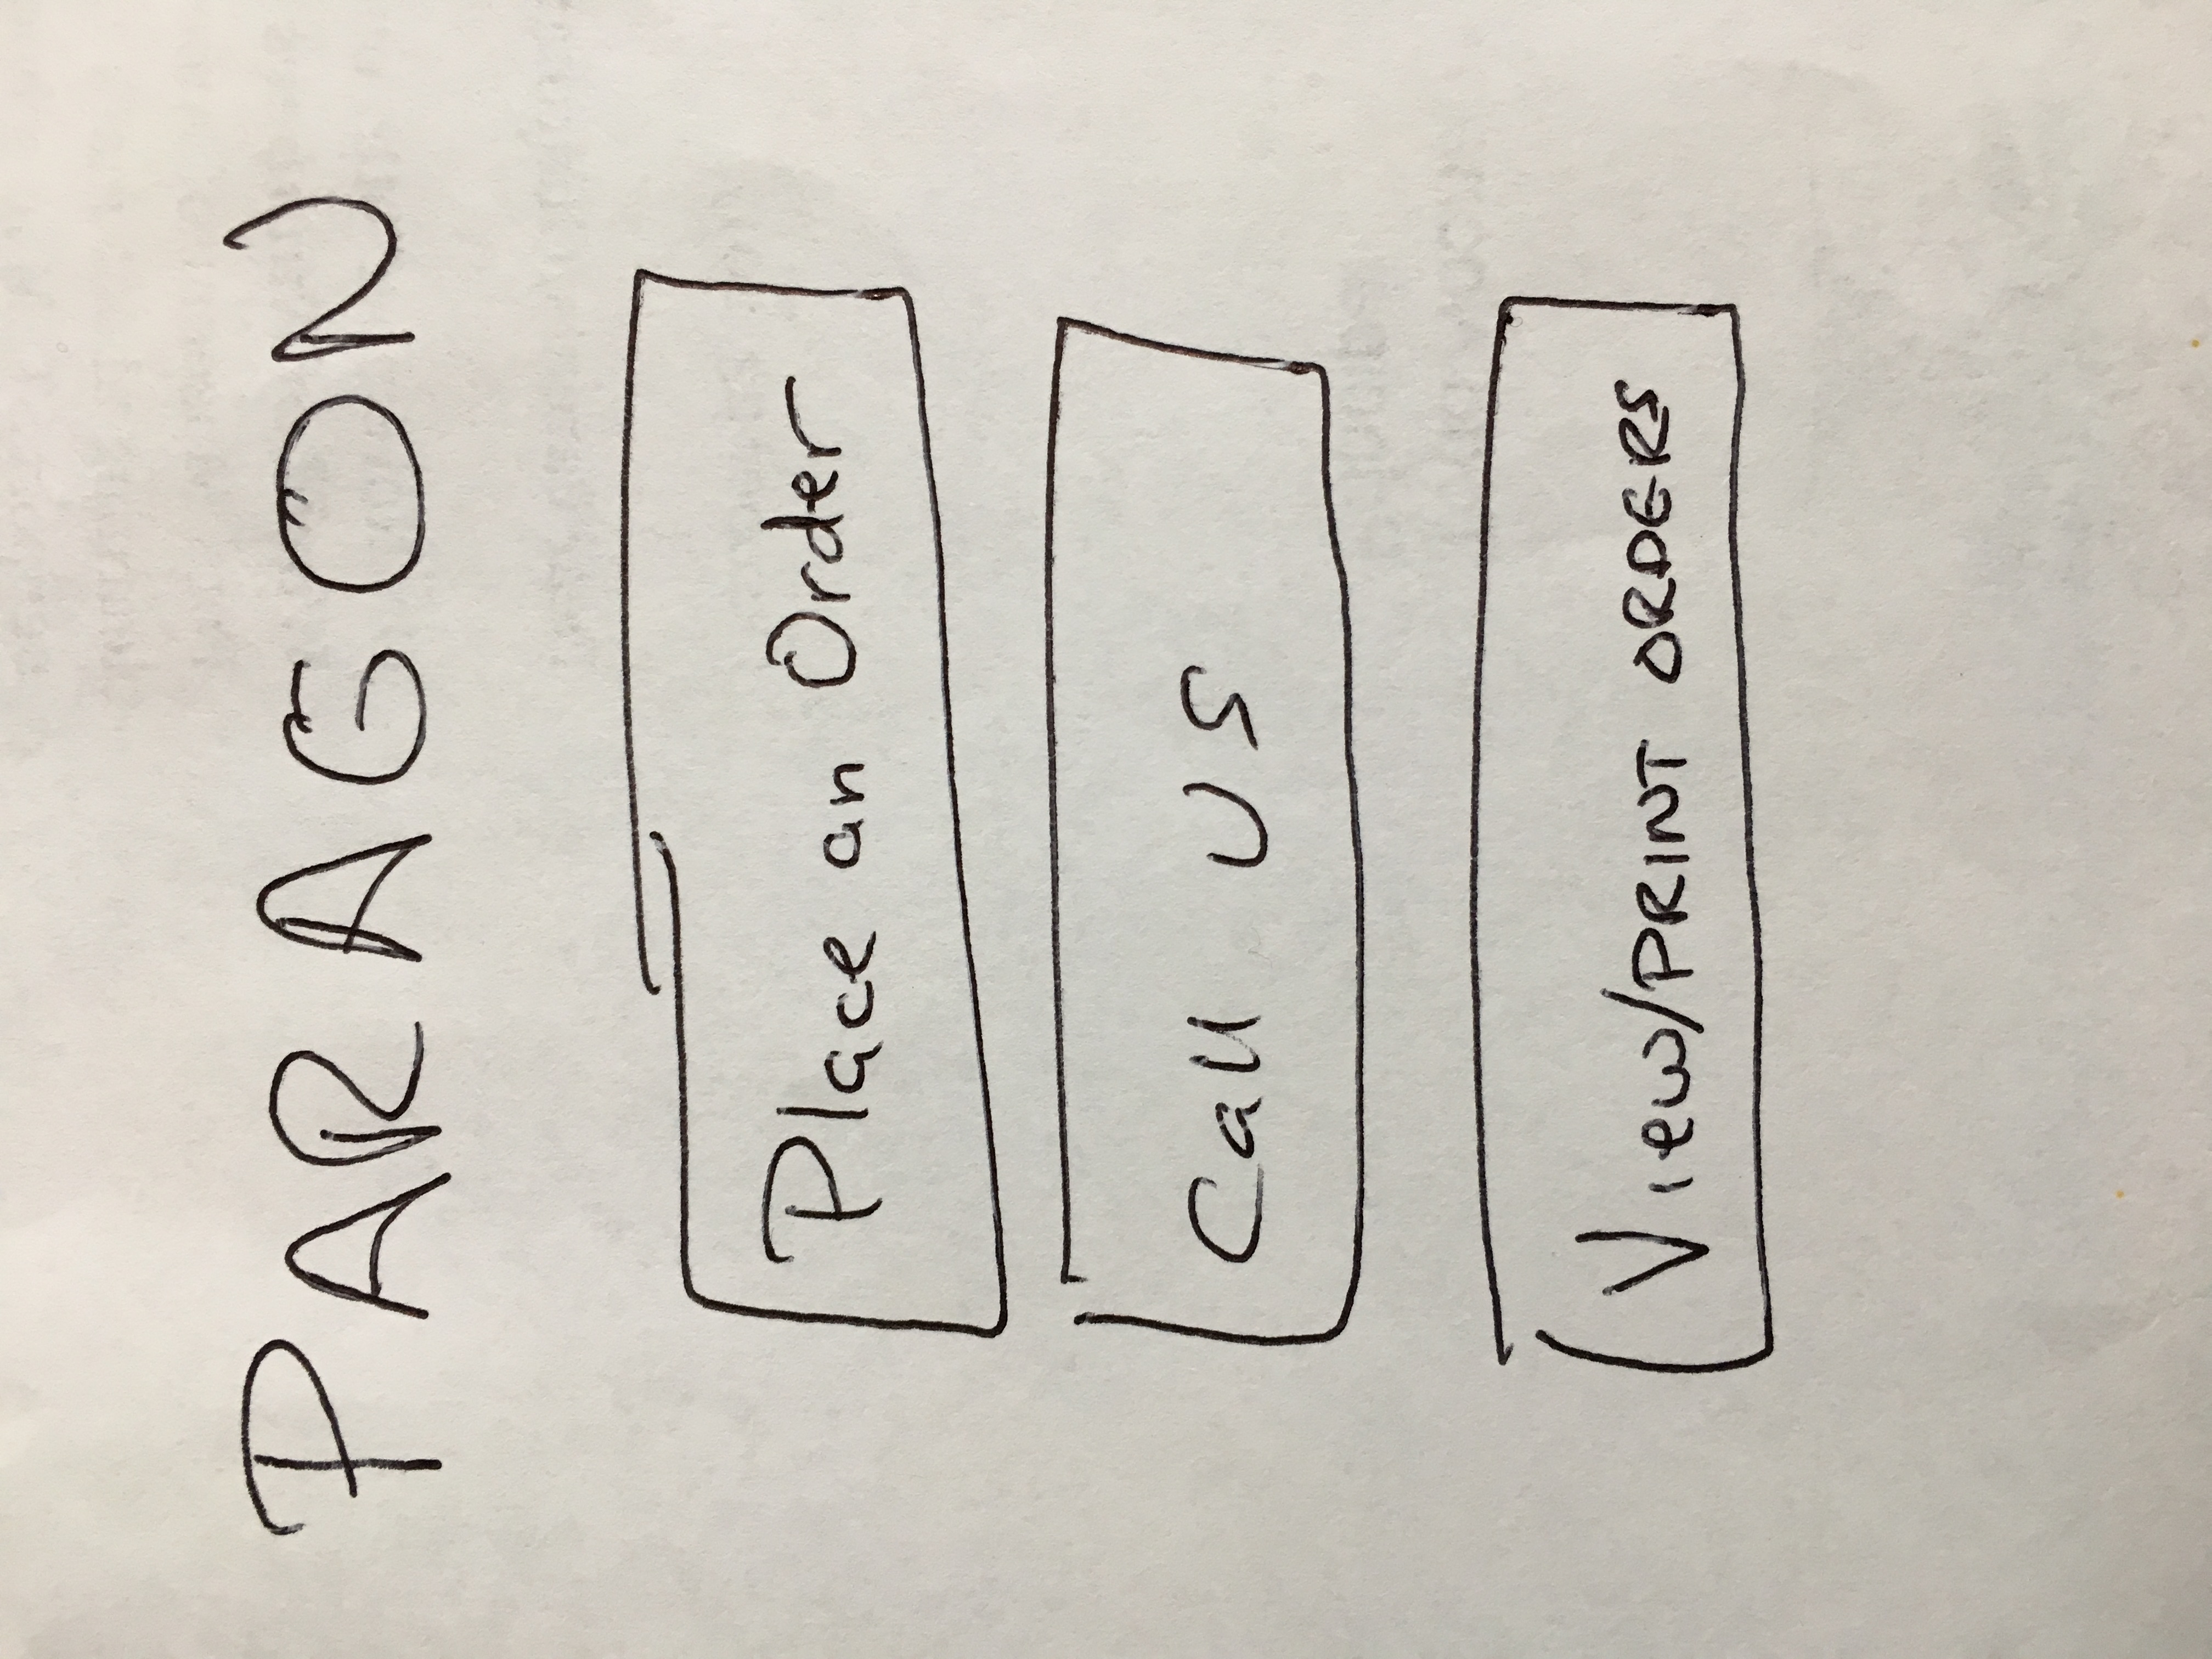 PARAGON
Place an Order
Call US
View/PRINT ORDERS